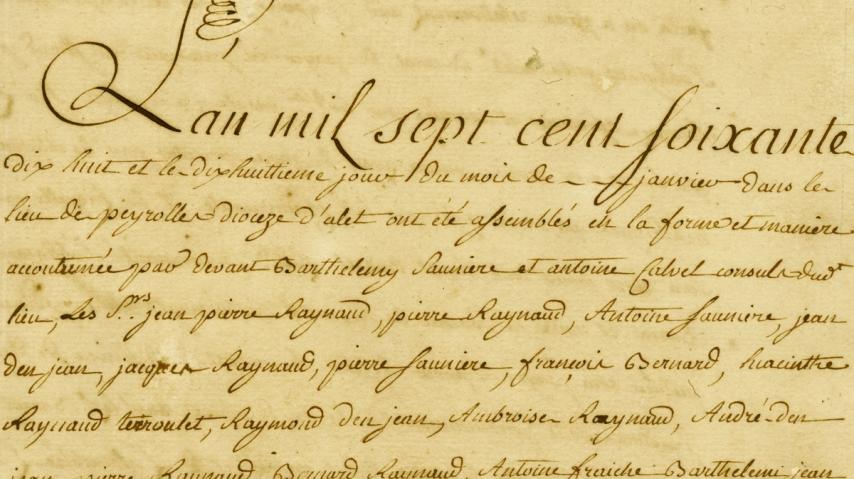 L'an mil sept cent soixante
dix huit et le dixhuittieme jour du mois de janvier dans le
lieu de peyrolles dioceze d'alet ont été assemblés en la forme et maniere
accoutumée par devant Barthelemy Sauniere et antoine Calvet consuls dud.t
lieu, Les S.rs jean pierre Raynaud, pierre Raynaud, Antoine Sauniere, jean
den jean, jacques Raynaud, pierre Sauniere, françois Bernard, hiacinthe
Raynaud terroulet, Raymond den jean, Ambroise Raynaud, André den
jean, pierre Raynaud, Bernard Raynaud, Antoine fraiche Barthelemi jean